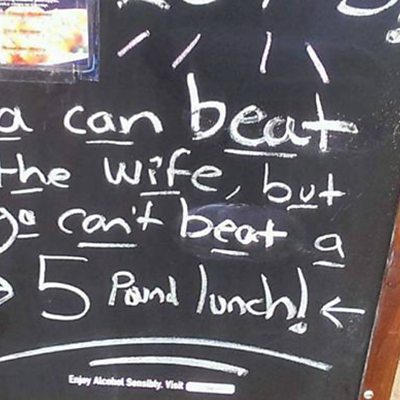 a can beat
the wife, but
ya can't beat a
→ 5 Pound lunch! ←
Enjoy Alcohol Sensibly. Visit